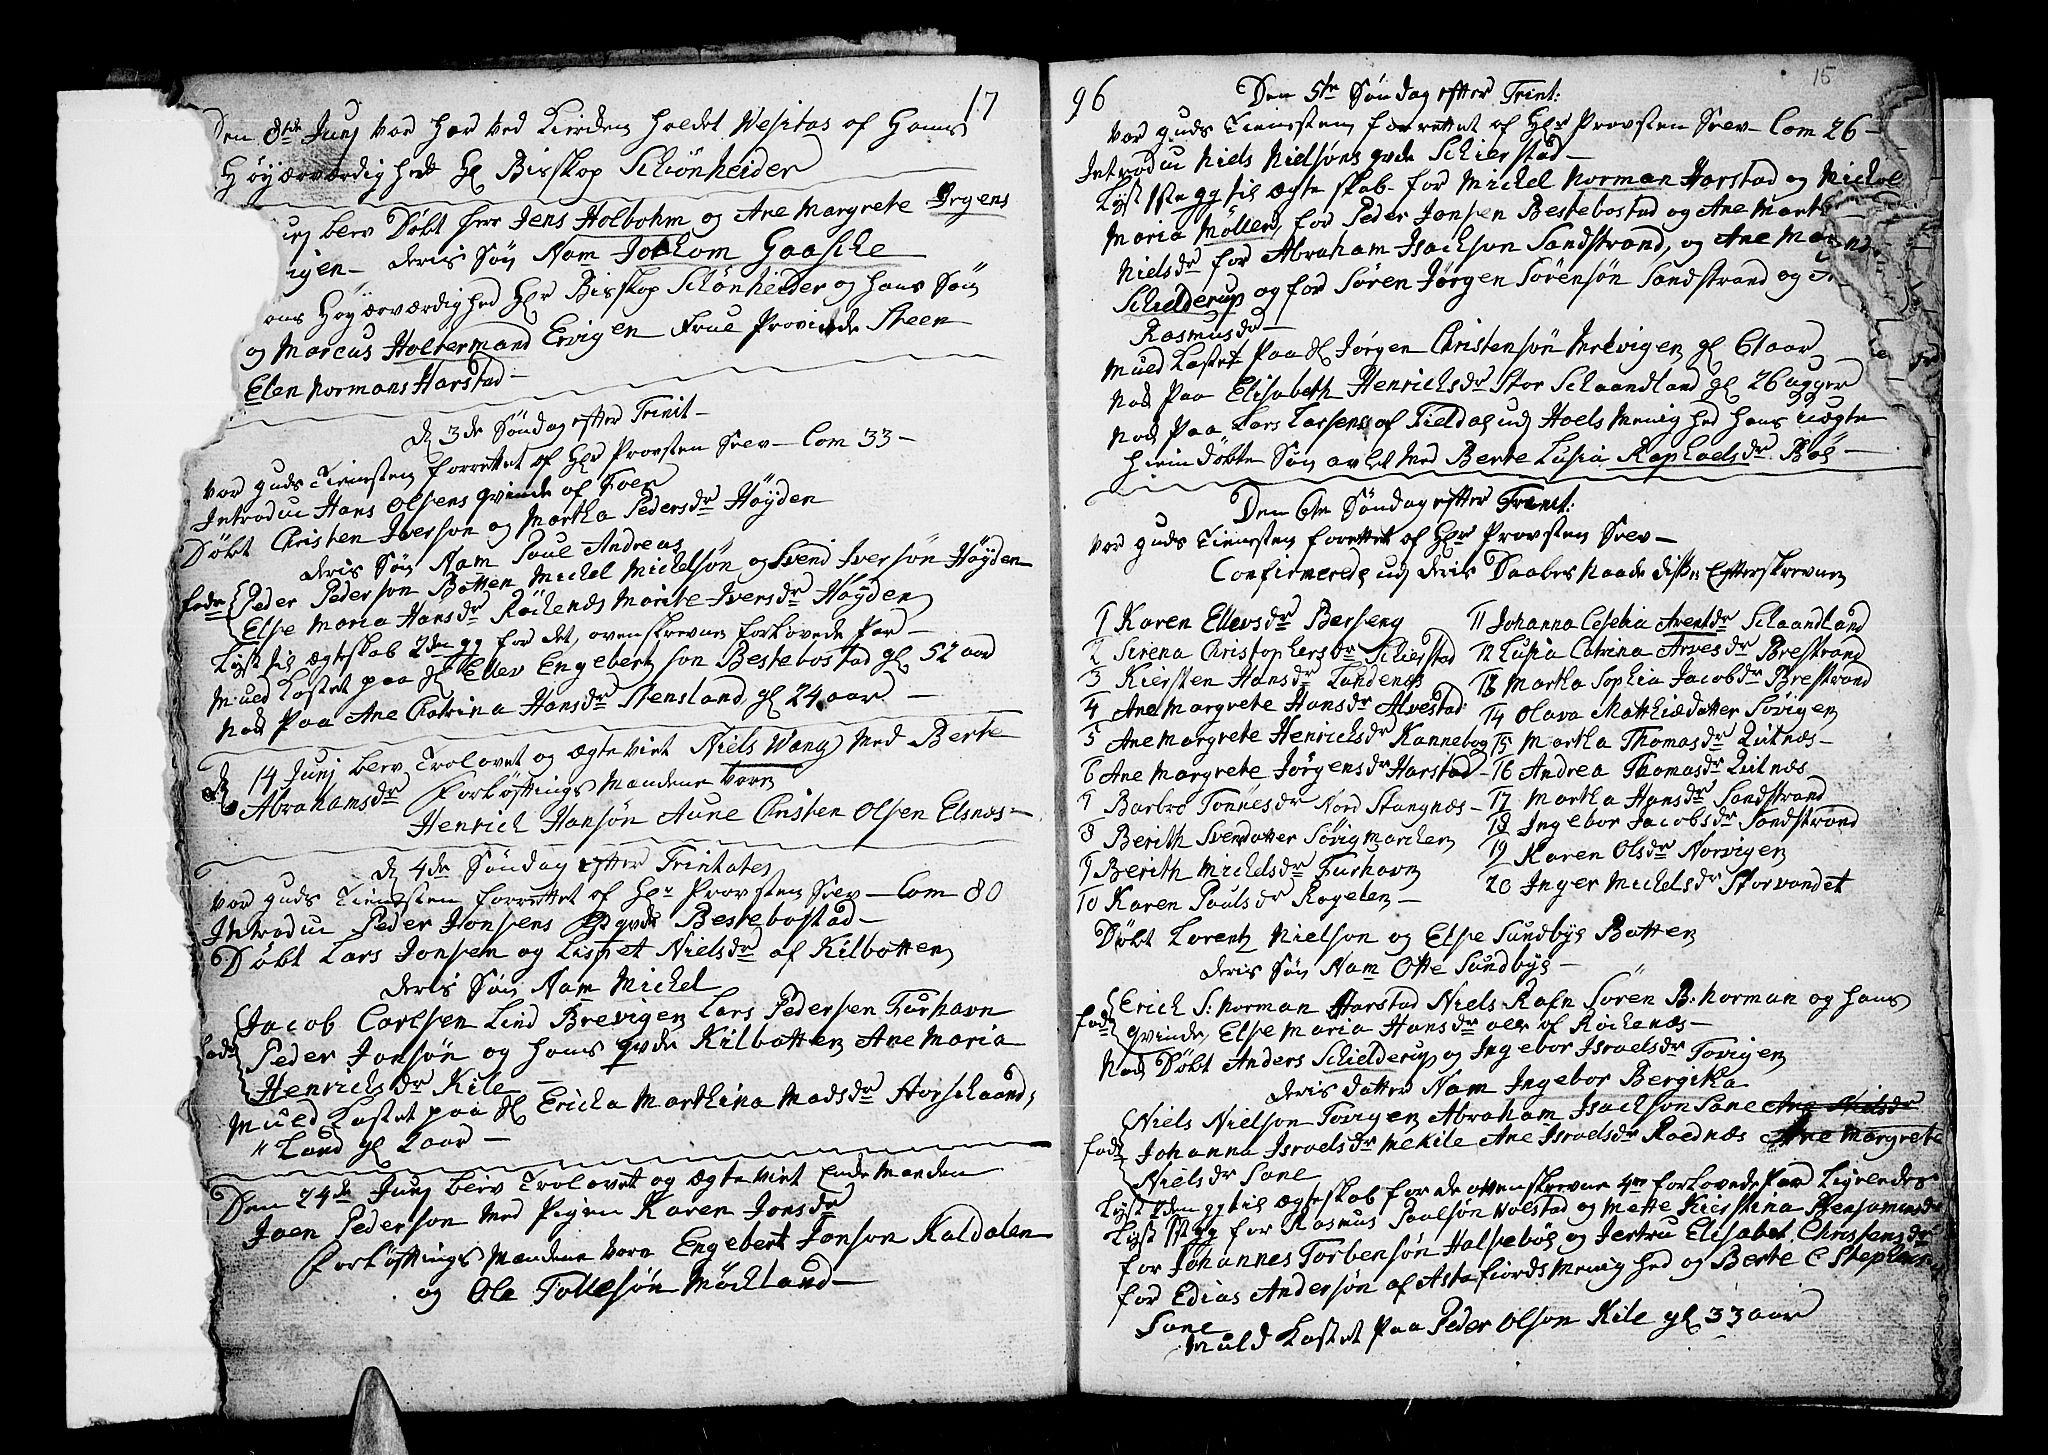 17
Den 8de Junj var her ved Kirken holdet Vesitas af Hans
Høyærværdighed Hr Biskop Schiönheider
blev Døbt herr Jens Holbohm og Ane Margrete Irgens
deris Søn Nam Jochom Gaasche
Høyærværdighed Hr Biskop Schönheider og hans Søn
og Marcus Holtermand Ervigen Frue Steen
Elen Normans Harstad
D 3de Søndag efter Trinit
var guds Tienesten forrettet af Hr Provsten Srev Com 33
Introdu Hans Olsens qvinde af Foer
Døbt Christen Iverson og Martha Pedersdr Høyden
deris Søn Nam Poul Andreas
Peder Pederson Botten Michel Michelsön og Svend Iversön Høyden
fadr
Else Maria Hansdr Röckenes Marite Iversdr Høyden
Lyst til ægteskab 2den gg for det ovenskrevne forlovede Par
Muld Kastet paa Sl Ellev Engebertson Bestebostad gl 52 aar
Nok Paa Ane Catrina Hansdr Stensland gl 24 aar
D 14 Junj blev Trolovet og ægteviet Niels Wang Med Berte
Abrahamsdr Forløftings Mandene vare
Henrich Hansön Aune Christen Olsen Elsnæs
D 4de Søndag efter Trinitates
var guds Tienesten forrettet af Hr Provsten Srev Com 80
Introdu Peder Jonsens qvde Bestebostad
Døbt Lars Jonsen og Lisbet Nielsdr af Kilbotten
deris Søn Nam Michel
Jacob Carlsen Lind Brevigen Lars Pedersen Furhavn
fadr
Peder Jonsön og hans qvde Kilbotten Ane Maria
Henrichsdr Kile
Muld Kastet paa Sl Ericha Marthina Madsdr Storschaand,
" Land gl 2 aar
Den 24de Junj blev Trolovet og ægteviet Enke Manden
Joen Pederson Med Pigen Karen Jonsdr
Forløftings Mandene vare Engebert Jonson Kaldalen
og Ole Tollesön Möckland
15
96
Den 5te Søndag efter Trint:
var guds Tienesten forrettet af Hr Provsten Srev Com 26
Introdu Niels Nielsöns qvde Schierstad
Lyst 1ste gg til ægteskab for Michel Norman Harstad og Michel
Maria Möller, for Peder Jonsen Bestebostad og Ane Marthe
Nielsdr for Abraham Isachson Sandstrand, og Ane Mar
Schielderup og for Sören Jörgen Sörensön Sandstrand og
Rasmusdr
Muld Kastet Paa Sl Jörgen Christensön Melvigen gl 61 aar
Nok Paa Elisabeth Henrichsdr Stor Schaandland gl 26 uger
Nok Paa Lars Larsens af Fieldal udj Hoels Menighed hans uægte
hiemdøbte Søn avlet Med Berte Lusia Raphaelsdr Böe
Den 6te Søndag efter Trinit:
var guds Tienesten forettet af Hr Provsten Srev
Confirmerede udj deris Daabes Naade disse Efterskrevne
1 Karen Ellevsdr Berseng
2 Sirena Christophersdr Schierstad
3 Kiersten Hansdr Lundenes
4 Ane Margrete Hansdr Alvestad
5 Ane Margrete Henrichsdr Kannebog
6 Ane Margrete Jörgensdr Harstad
7 Barbro Tönnesdr Nord Stangnæs
8 Berith Svendatter Søvigmarcken
9 Berith Michelsdr Furhavn
10 Karen Poulsdr Rogelen
11 Johanna Ceselia Arentdr Schaandland
12 Lusia Catrina Arvesdr Brestrand
13 Martha Sophia Jacobdr Brestrand
14 Olava Mathiedatter Søvigen
15 Martha Thomasdr Qvitnæs
16 Andrea Thomasdr Qvitnæs
17 Martha Hansdr Sandstrand
18 Ingebor Jacobsdr Sandstrand
19 Karen Olsdr Norvigen
20 Inger Michelsdr Storvandet
Døbt Lorentz Nielson og Else Sundbye Botten
deris Søn Nam Otte Sundbye
Erich S: Norman Harstad Niels Rafn Sören B: Norman og hans
fadr
qvinde Else Maria Hansdr alle af Röckenæs
Nok Døbt Anders Schielderup og Ingebor Israelsdr Tovigen
deris datter Nam Ingebor Bergitha
Niels Nielson Tovigen Abraham Isachson Sane Ane Nielsdr
fadr
Johanna Israelsdr Mekile Ane Israelsdr Roednæs Ane Margrete
Nielsdr Sane
Lyst 2den gg til ægteskab for de ovenskrevne 4re forlovede Par Ligeledes
Lyst 1ste gg for Rasmus Poulsön Volstad og Mette Kierstina Bensamindr
for Johannes Torbensön Halsebøe og Jertru Elisabet Christensdr
for Edias Andersön af Astafiords Menighed og Berte E Stephens
Sane
Muld Kastet Paa Peder Olson Kile gl 33 aar